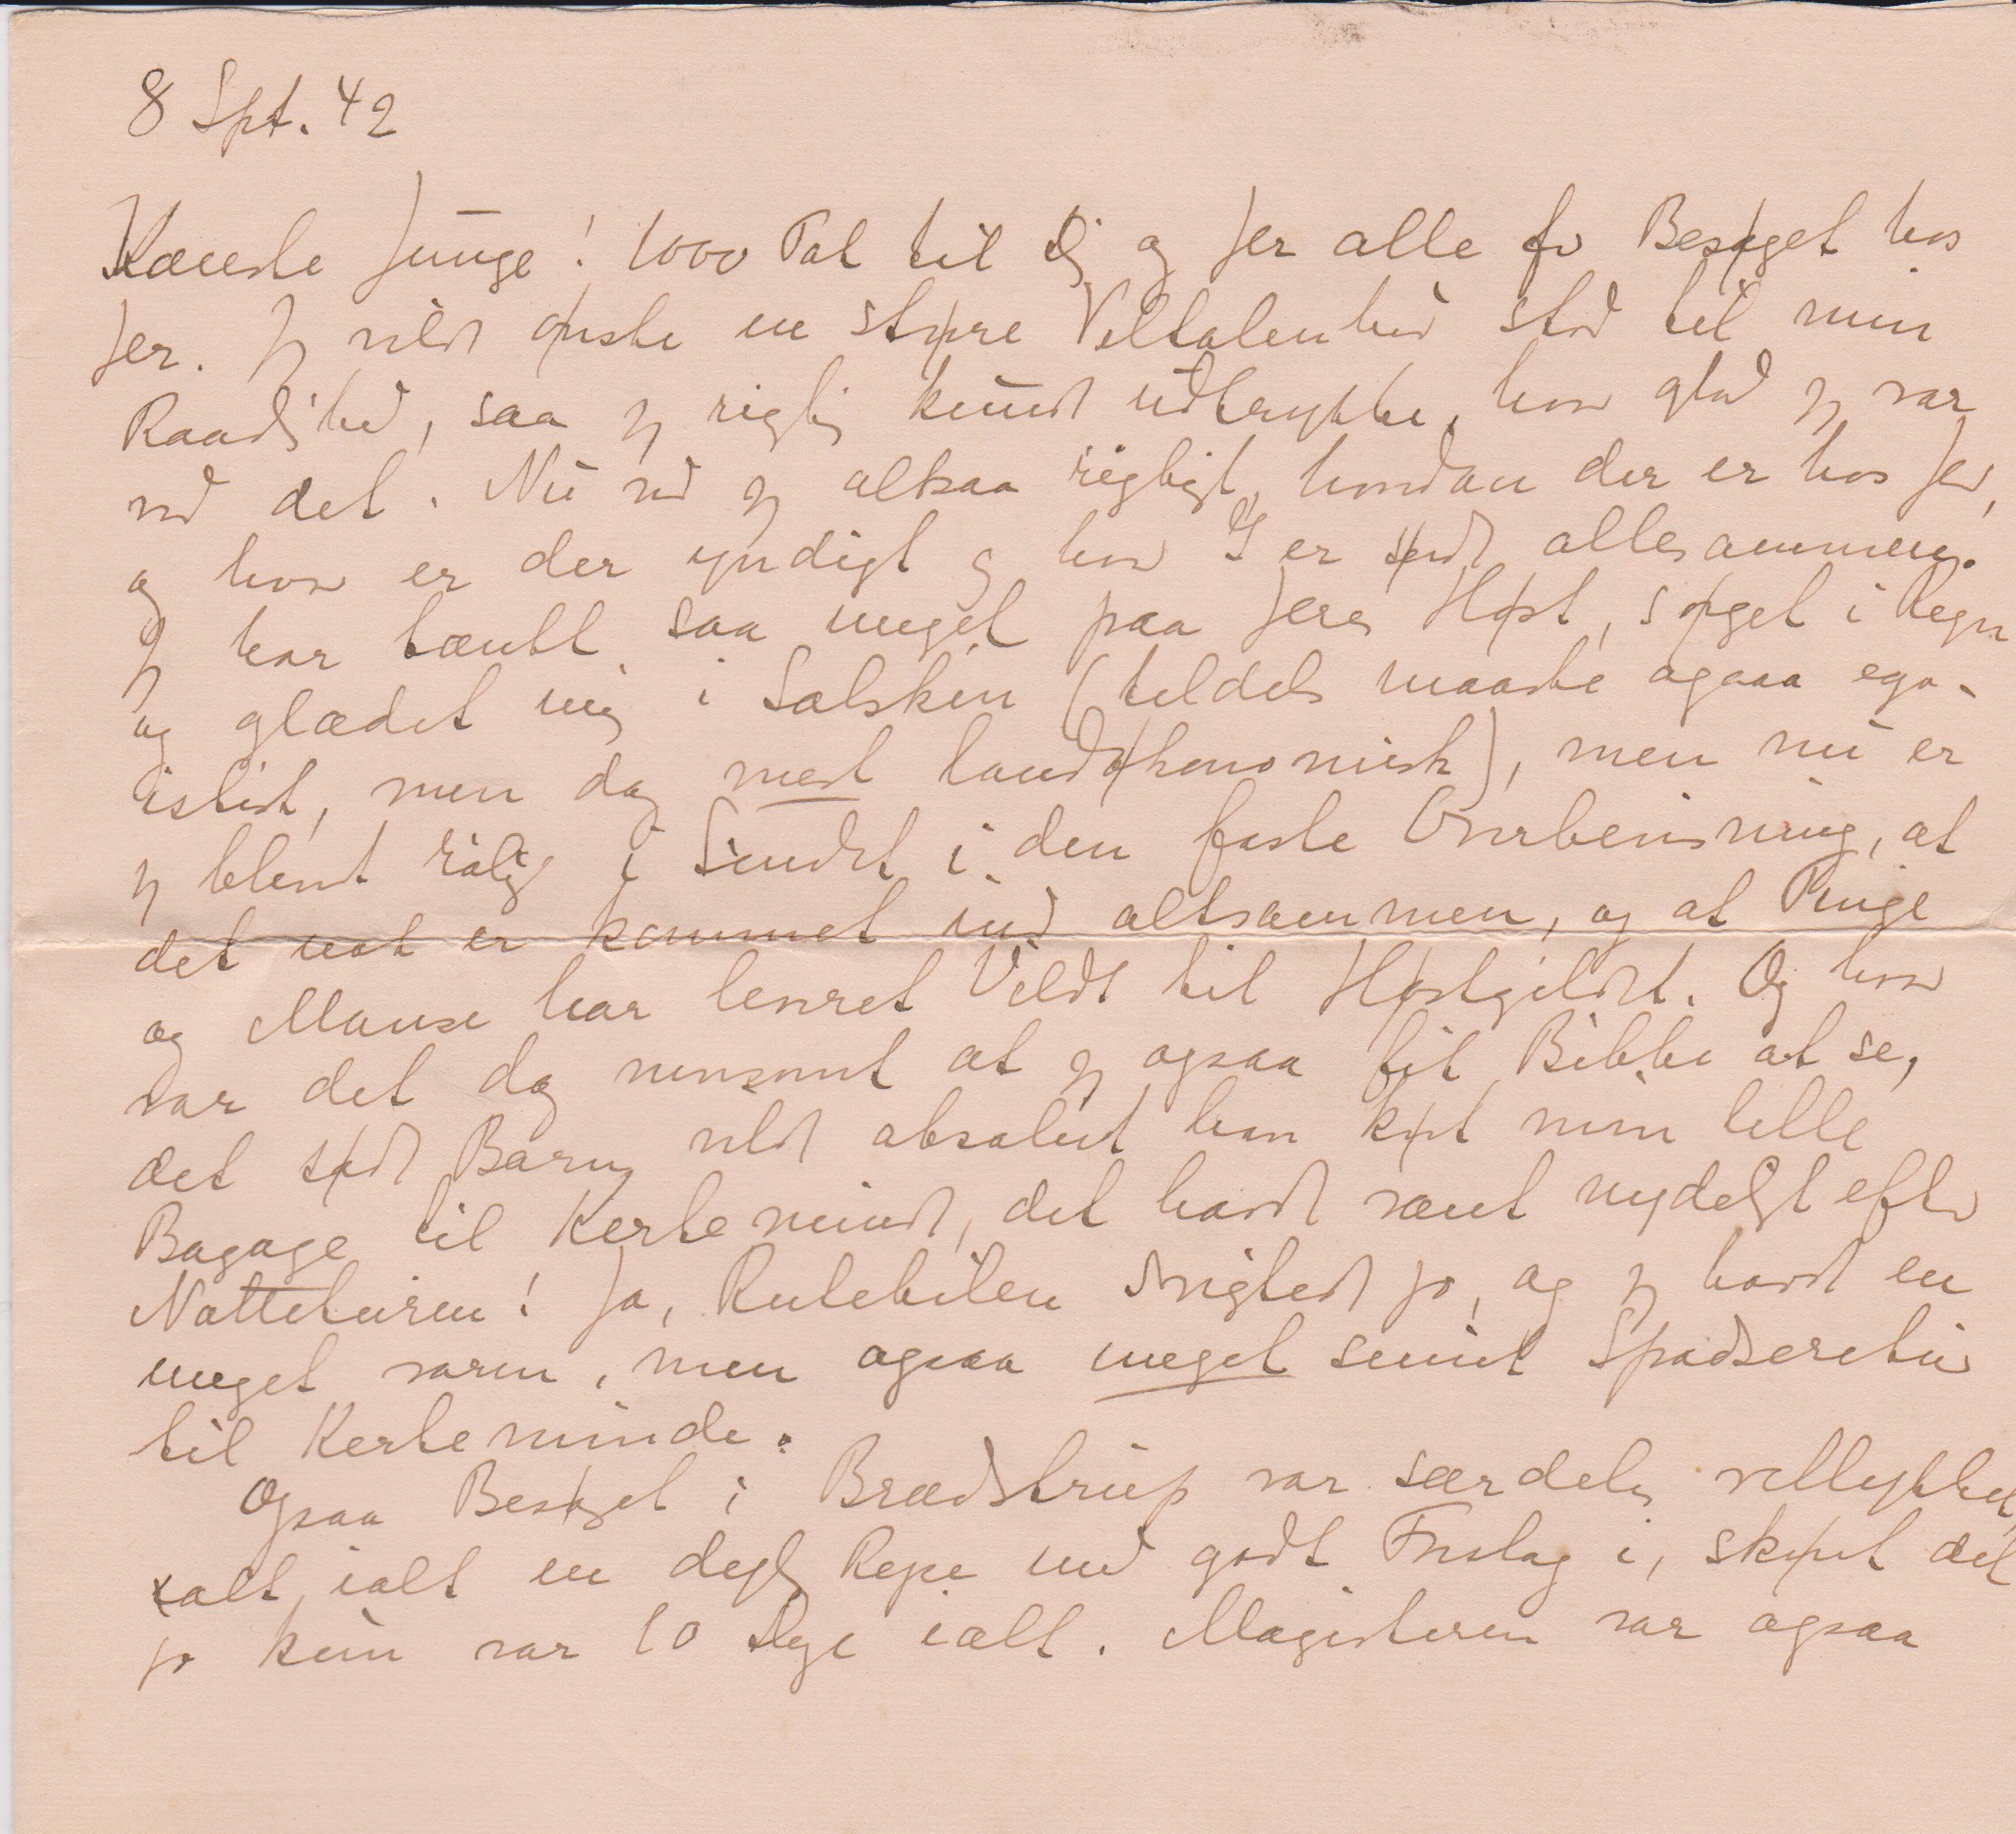 8 Spt. 42
Kæreste Junge! 1000 Tak til Dig og Jer alle for Besøget hos
Jer. Jeg vilde ønske en større Veltalenhed stod til min
Raadighed, saa jeg rigtig kunde udtrykke, hvor glad jeg var
ved det. Nu ved jeg altsaa rigtigt, hvordan der er hos Jer,
og hvor er der yndigt og hvor I er søde allesammen.
Jeg har tænkt saa meget paa Jeres Høst, sørget i Regn
og glædet mig i Solskin (tildels maaske ogsaa ego-
istisk, men dog mest landøkonomisk), men nu er
jeg blevet rolig i Sindet i den faste Overbevisning, at
det nok er kommet ind altsammen, og at Pinge
og Manse har leveret Vildt til Høstgildet. Og hvor
var det dog morsomt at jeg ogsaa fik Bibbe at se,
det søde Barn vilde absolut have kørt min lille
Bagage til Kerteminde, det havde været nydeligt efter
Natteturen! Ja, Rutebilen svigtede jo, og jeg havde en
meget varm, men ogsaa meget smuk Spadseretur
til Kerteminde.
Ogsaa Besøget i Brædstrup var særdeles vellykket,
alt ialt en dejlig Rejse med godt Forslag i, skønt det
jo kun var 10 Dage ialt. Magisteren var ogsaa